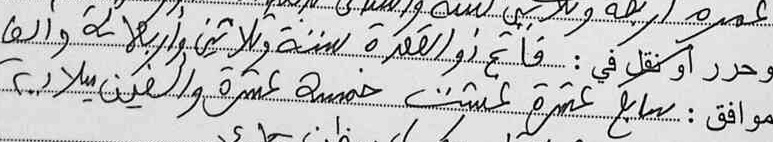 عمره أربعة وثلاثين سنة
وحرر أو نقل في : فاتح ذو القعدة سنة وثلاثين وأربعمائة والف
موافق : سابع عشرة غشت خمسة عشرة والفين ميلادية